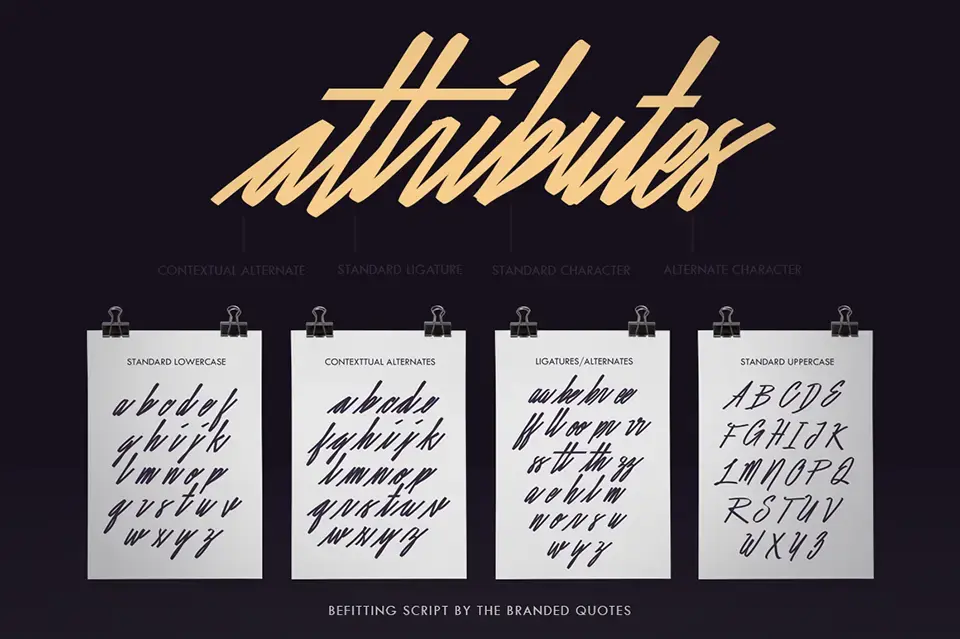 attributes
CONTEXTUAL ALTERNATE STANDARD LIGATURE STANDARD CHARACTER ALTERNATE CHARACTER
STANDARD LOWERCASE
a b c d e f
g h i j k
l m n o p
q r s t u v
w x y z
CONTEXTTUAL ALTERNATES
a b c d e
f g h i j k
l m n o p
q r s t u v
w x y z
LIGATURES/ALTERNATES
au be br ee
ff ll oo pr rr
ss tt th zz
a e h l m
n o r s u
w y z
STANDARD UPPERCASE
A B C D E
F G H I J K
L M N O P Q
R S T U V
W X Y Z
BEFITTING SCRIPT BY THE BRANDED QUOTES